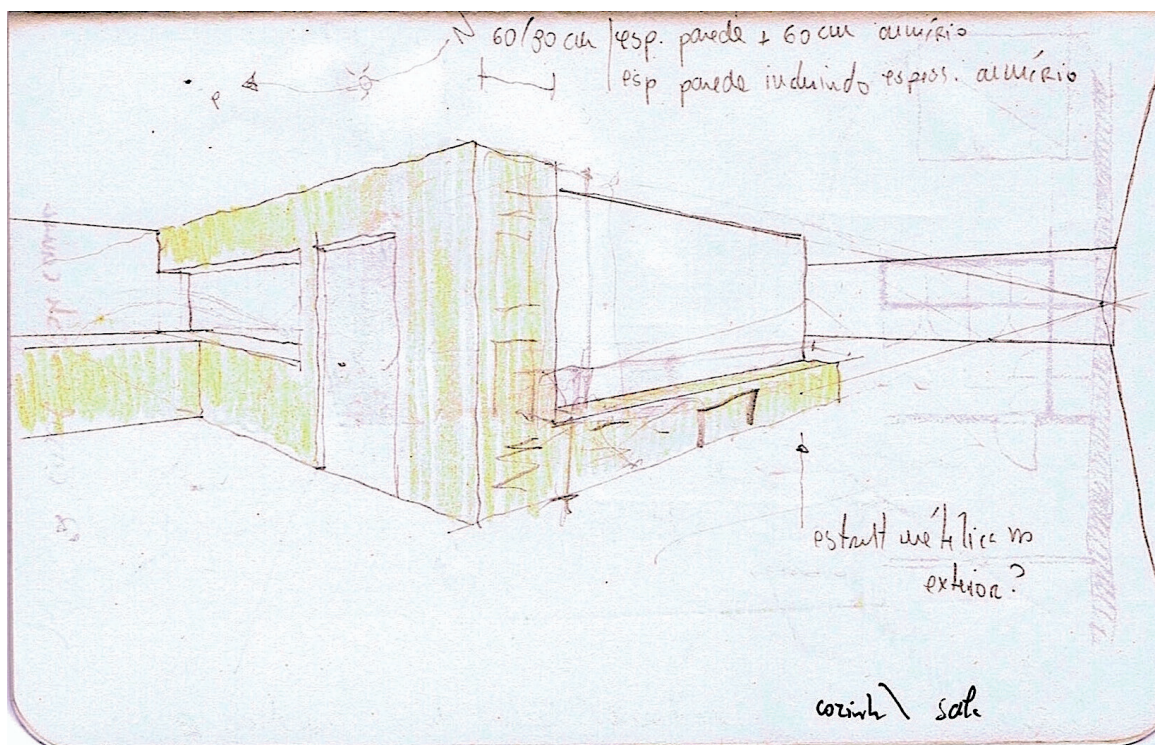 N
60/80 cm / esp. parede + 60 cm armário
P
esp parede incluindo espess. armário
estrut metálica no
exterior?
cozinh \ sala